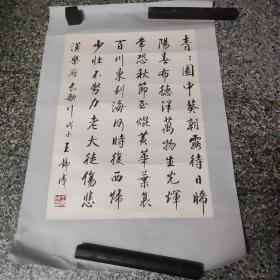 青〻園中葵朝露待日晞
陽春布德澤萬物生光輝
常恐秋節至焜黃華葉衰
百川東到海何時復西歸
少壯不努力老大徒傷悲
漢樂府長歌行戊子王